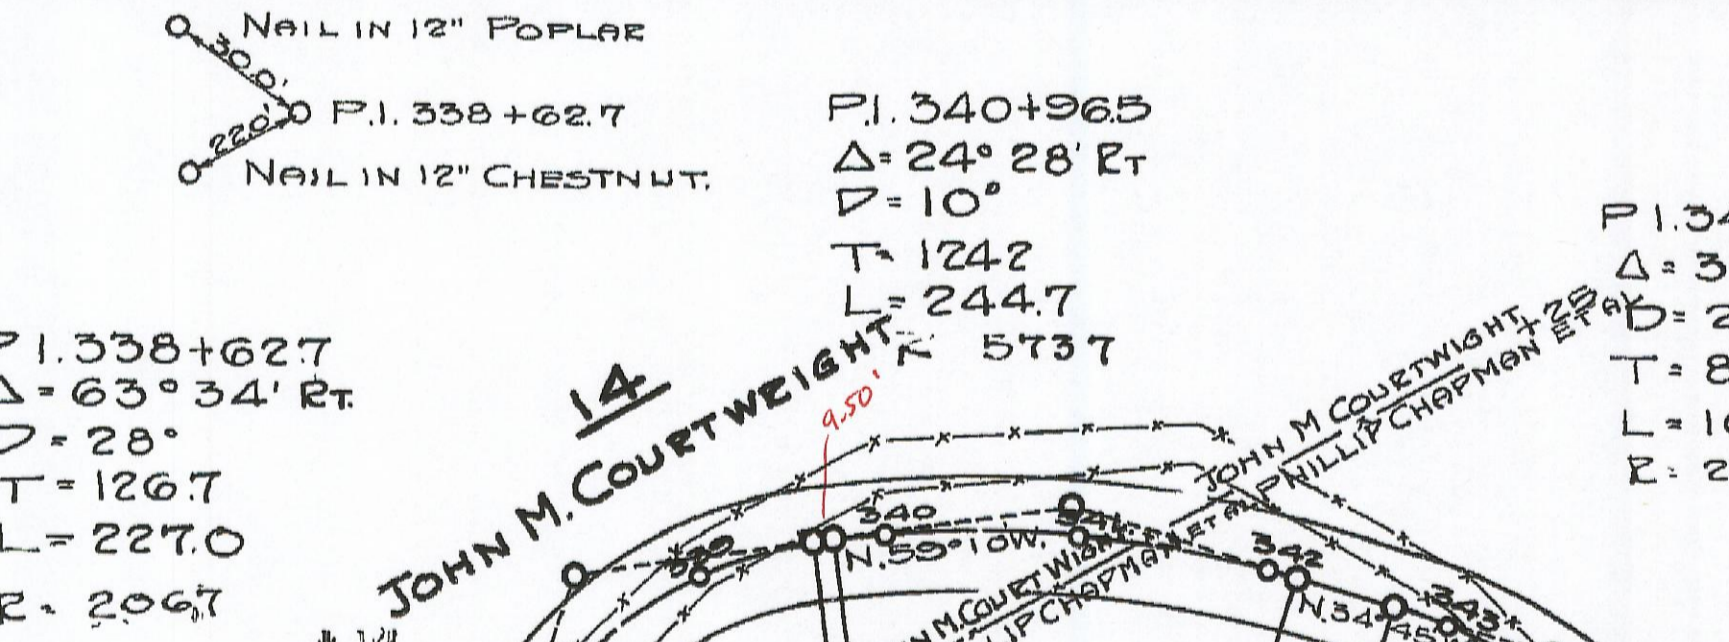 NAIL IN 12" POPLAR
30.0'
P.I. 338+62.7
22.0'
NAIL IN 12" CHESTNUT.
P.I. 340+96.5
Δ=24°28' RT
D=10°
T= 124.2
L=244.7
R 573 7
P I.34
Δ=3
D=2
T=8
L=10
R:2
P I.338+62.7
Δ=63°34' RT.
D=28°
T=126.7
L=227.0
R. 206.7
14
JOHN M. COURTWRIGHT
9.50'
JOHN M COURTWRIGHT +25
PHILLIP CHAPMAN ET AL
339
340
N.59°10W.
341
342
N.34°45
343
N M. COURTWRIGHT
LIP CHAPMAN ET AL